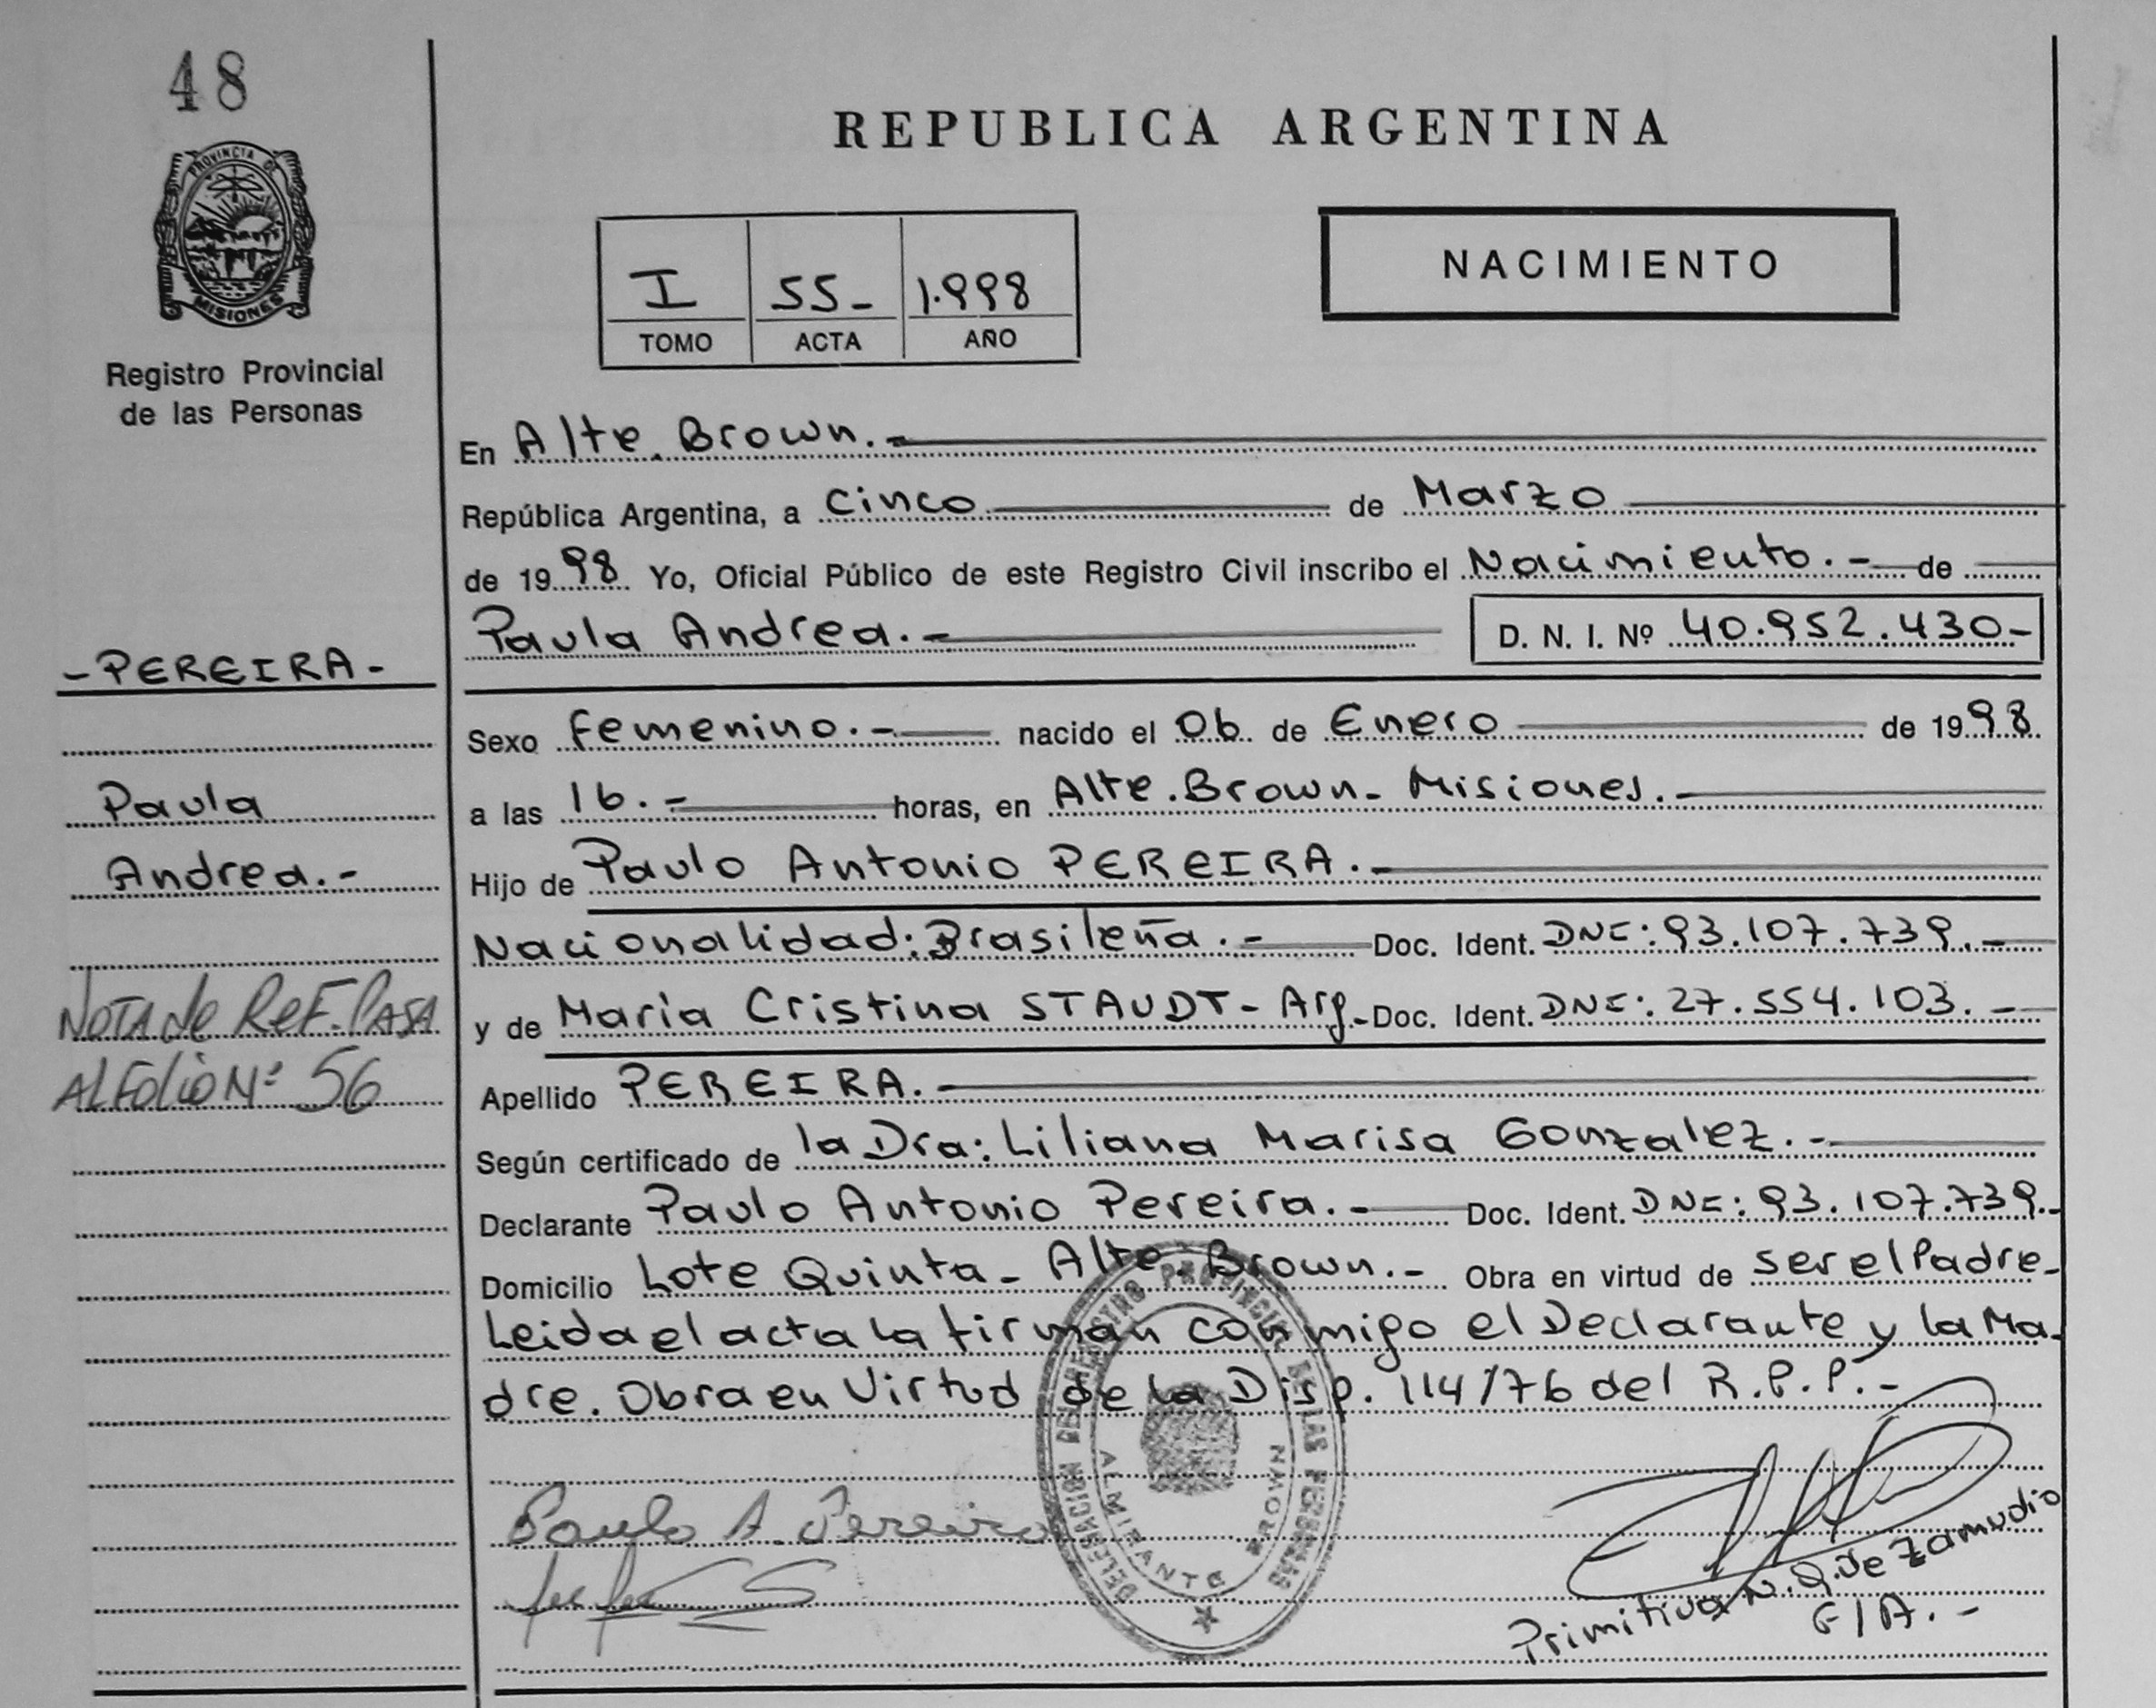 48
PROVINCIA DE
MISIONES
Registro Provincial
de las Personas
REPUBLICA ARGENTINA
I 55- 1.998
TOMO ACTA AÑO
NACIMIENTO
En Alte. Brown.-
República Argentina, a Cinco de Marzo
de 1998 Yo, Oficial Público de este Registro Civil inscribo el Nacimiento.- de
Paula Andrea.- D. N. I. Nº 40.952.430-
-PEREIRA-
Paula
Andrea.-
NOTA de REF. PASA
AL FOLIO Nº 56
Sexo Femenino.- nacido el 06 de Enero de 1998
a las 16.- horas, en Alte. Brown- Misiones.-
Hijo de Paulo Antonio PEREIRA.-
Nacionalidad: Brasileña.- Doc. Ident. DNI: 93.107.739.-
y de María Cristina STAUDT- Arg- Doc. Ident. DNI: 27.554.103.-
Apellido PEREIRA.-
Según certificado de la Dra: Liliana Marisa Gonzalez.-
Declarante Paulo Antonio Pereira.- Doc. Ident. DNI: 93.107.739.-
Domicilio Lote Quinta- Alte. Brown.- Obra en virtud de ser el Padre-
Leida el acta la firman conmigo el Declarante y la Ma-
dre. Obra en Virtud de la Disp. 114/76 del R.P.P.-
DELEGACION DEL REGISTRO PROVINCIAL DE LAS PERSONAS
ALMIRANTE BROWN
Paulo A. Pereira
Primitiva N. Q. de Zamudio